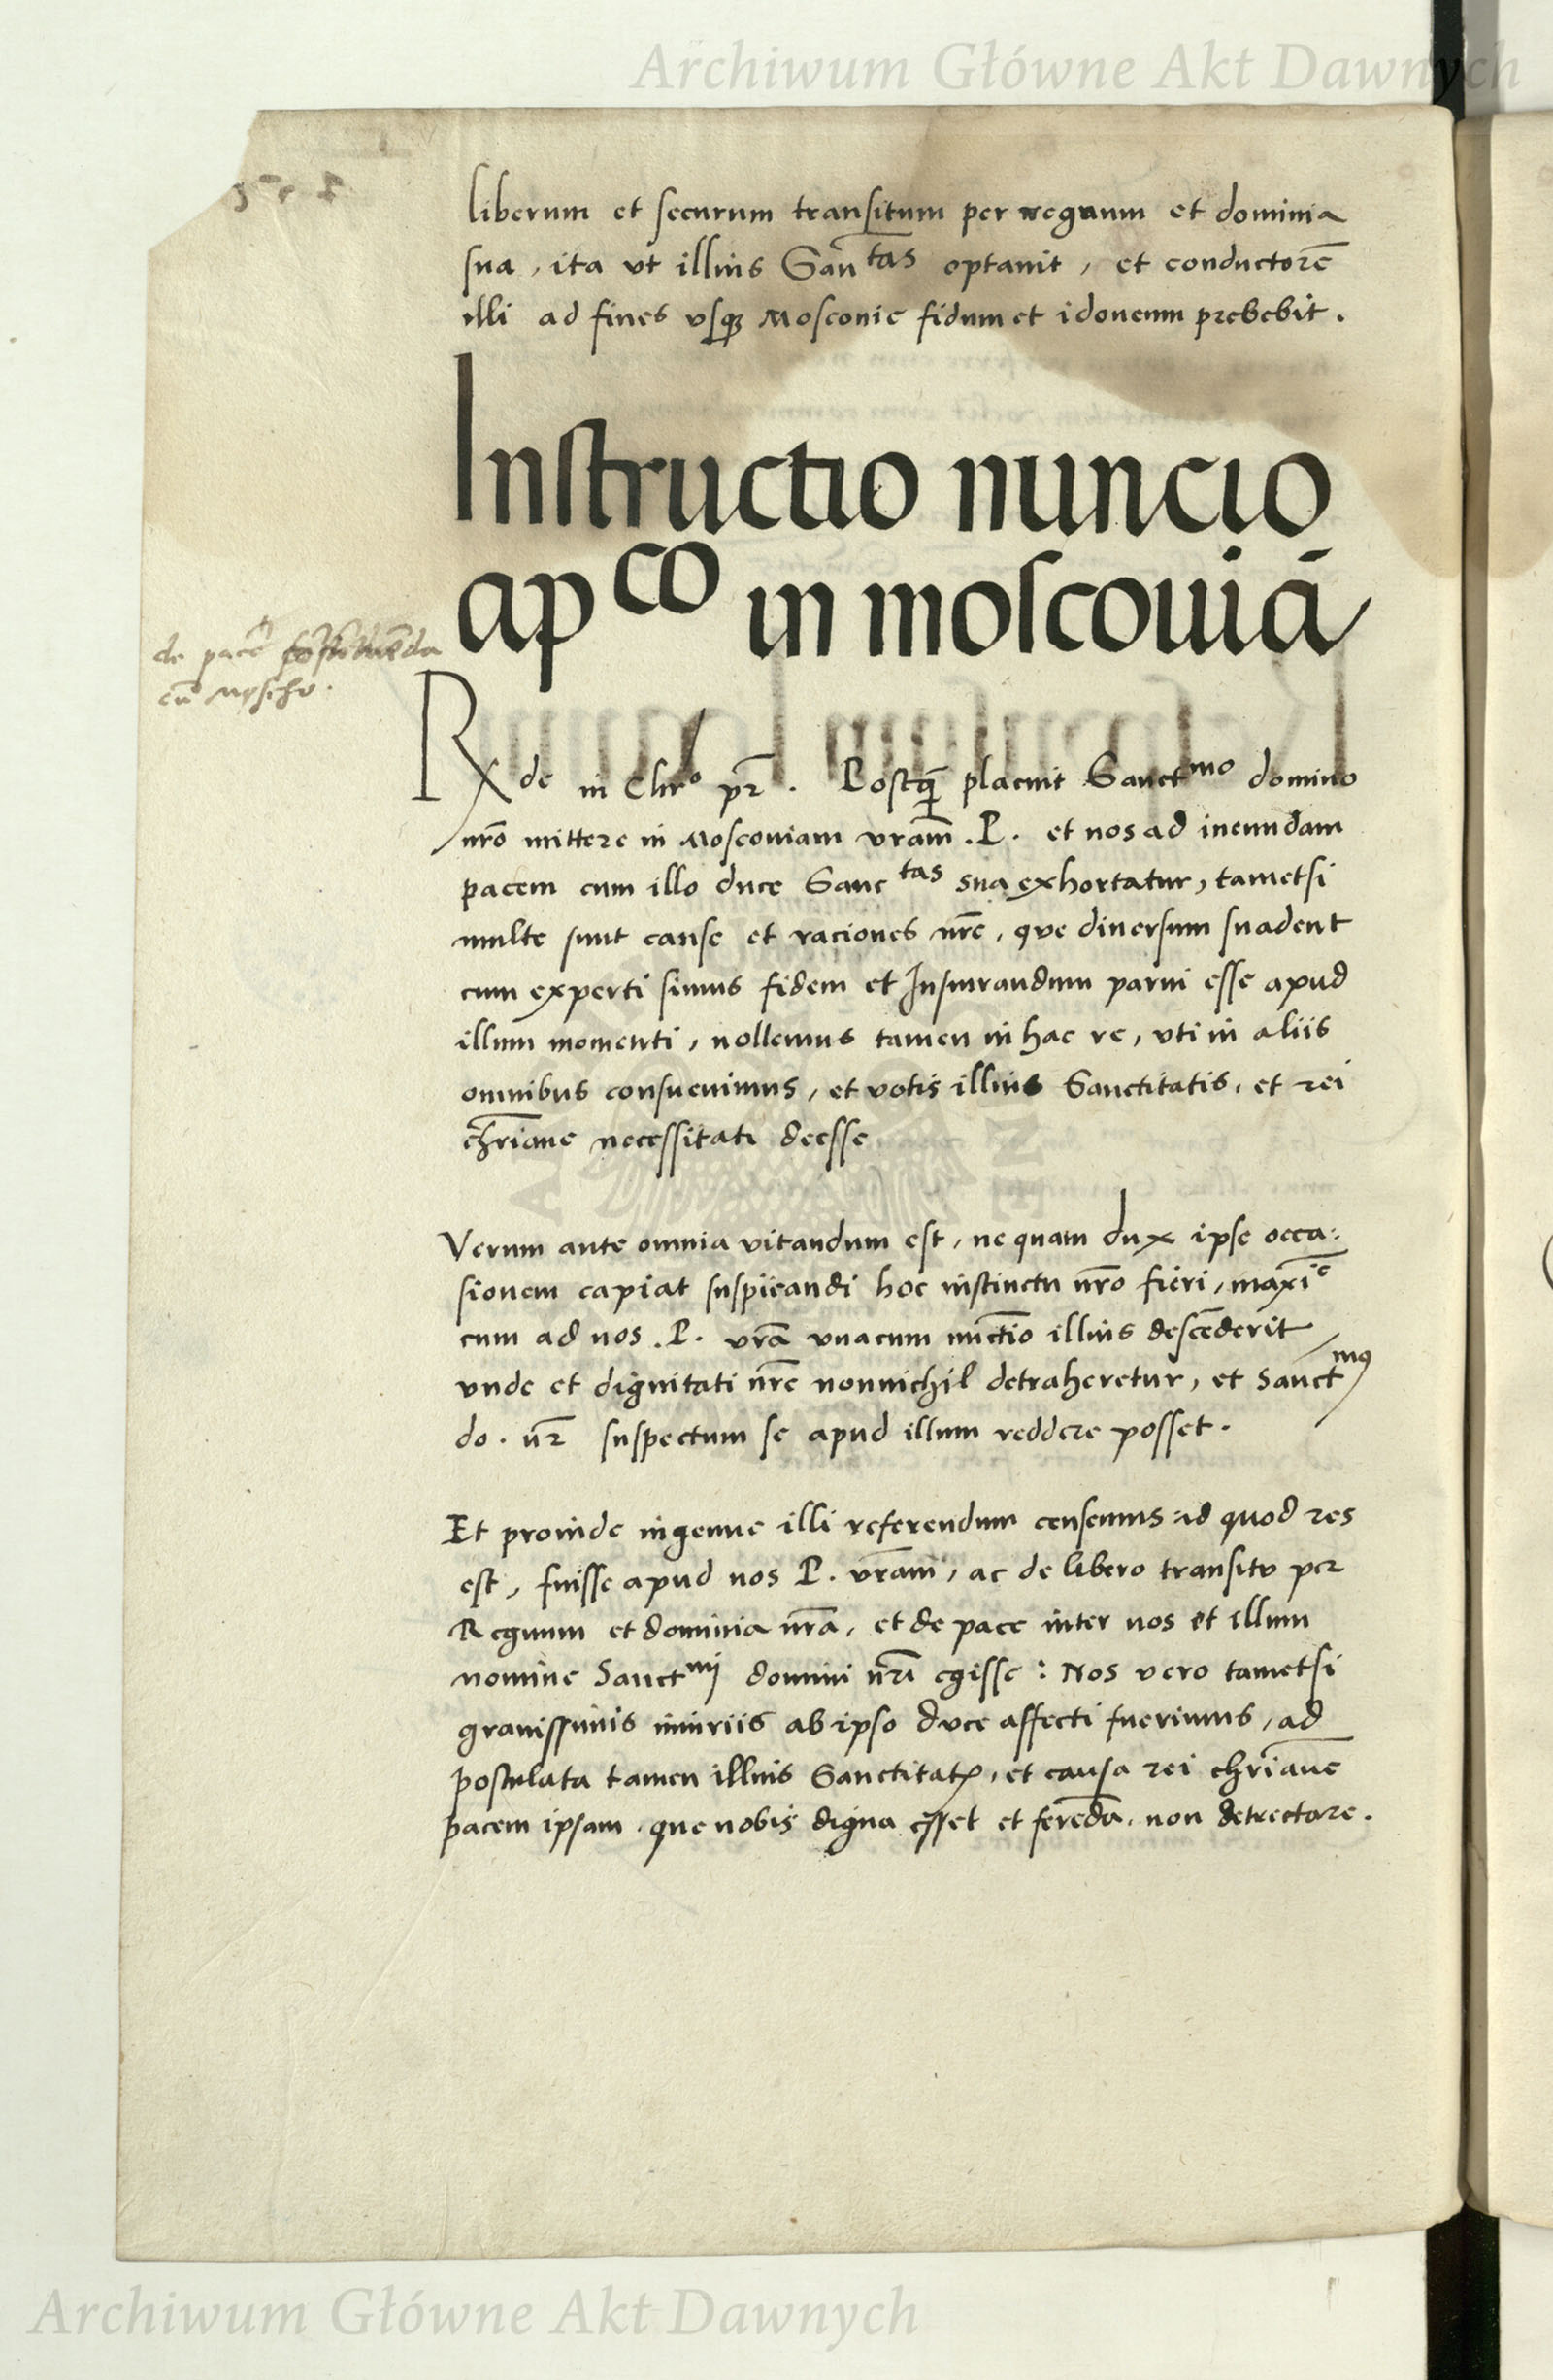 Archiwum Główne Akt Dawnych
liberum et securum transitum per regnum et dominia
sua, ita vt illius Sanctas optauit, et conductorē
illi ad fines vsqꝫ Moscouie fidum et idoneum prebebit.
Instructio nuncio
apco in moscouiā
de pace
cū Moscho.
Rx̄de in Chro pr̄. Postq̄ placuit Sanctmo domino
nr̄o mittere in Moscouiam vrām .P. et nos ad ineundam
pacem cum illo duce Sanctas sua exhortatur, tametsi
multe sunt cause et raciones nr̄e, que diuersum suadent
cum experti simus fidem et Iusiurandum parui esse apud
illum momenti, nollemus tamen in hac re, vti in aliis
omnibus consueuimus, et votis illius Sanctitatis, et rei
chr̄iane necessitati deesse
Verum ante omnia vitandum est, ne quam dux ipse occa:
sionem capiat suspicandi hoc instinctu nr̄o fieri, maxīe
cum ad nos .P. vrā vnacum nūctio illius descēderit
vnde et dignitati nr̄e nonnichil detraheretur, et Sanctmꝰ
do. nr̄ suspectum se apud illum reddere posset.
Et proinde ingenue illi referendum censemus id quod res
est, fuisse apud nos P. vrām, ac de libero transitu per
Regnum et dominia nr̄a, et de pace inter nos et illum
nomine Sanctmi domini nr̄i egisse: Nos vero tametsi
grauissimis iniuriis ab ipso duce affecti fuerimus, ad
postulata tamen illius Sanctitatꝭ, et causa rei chr̄iane
pacem ipsam, que nobis digna esset et ferēda, non detrectare.
Archiwum Główne Akt Dawnych